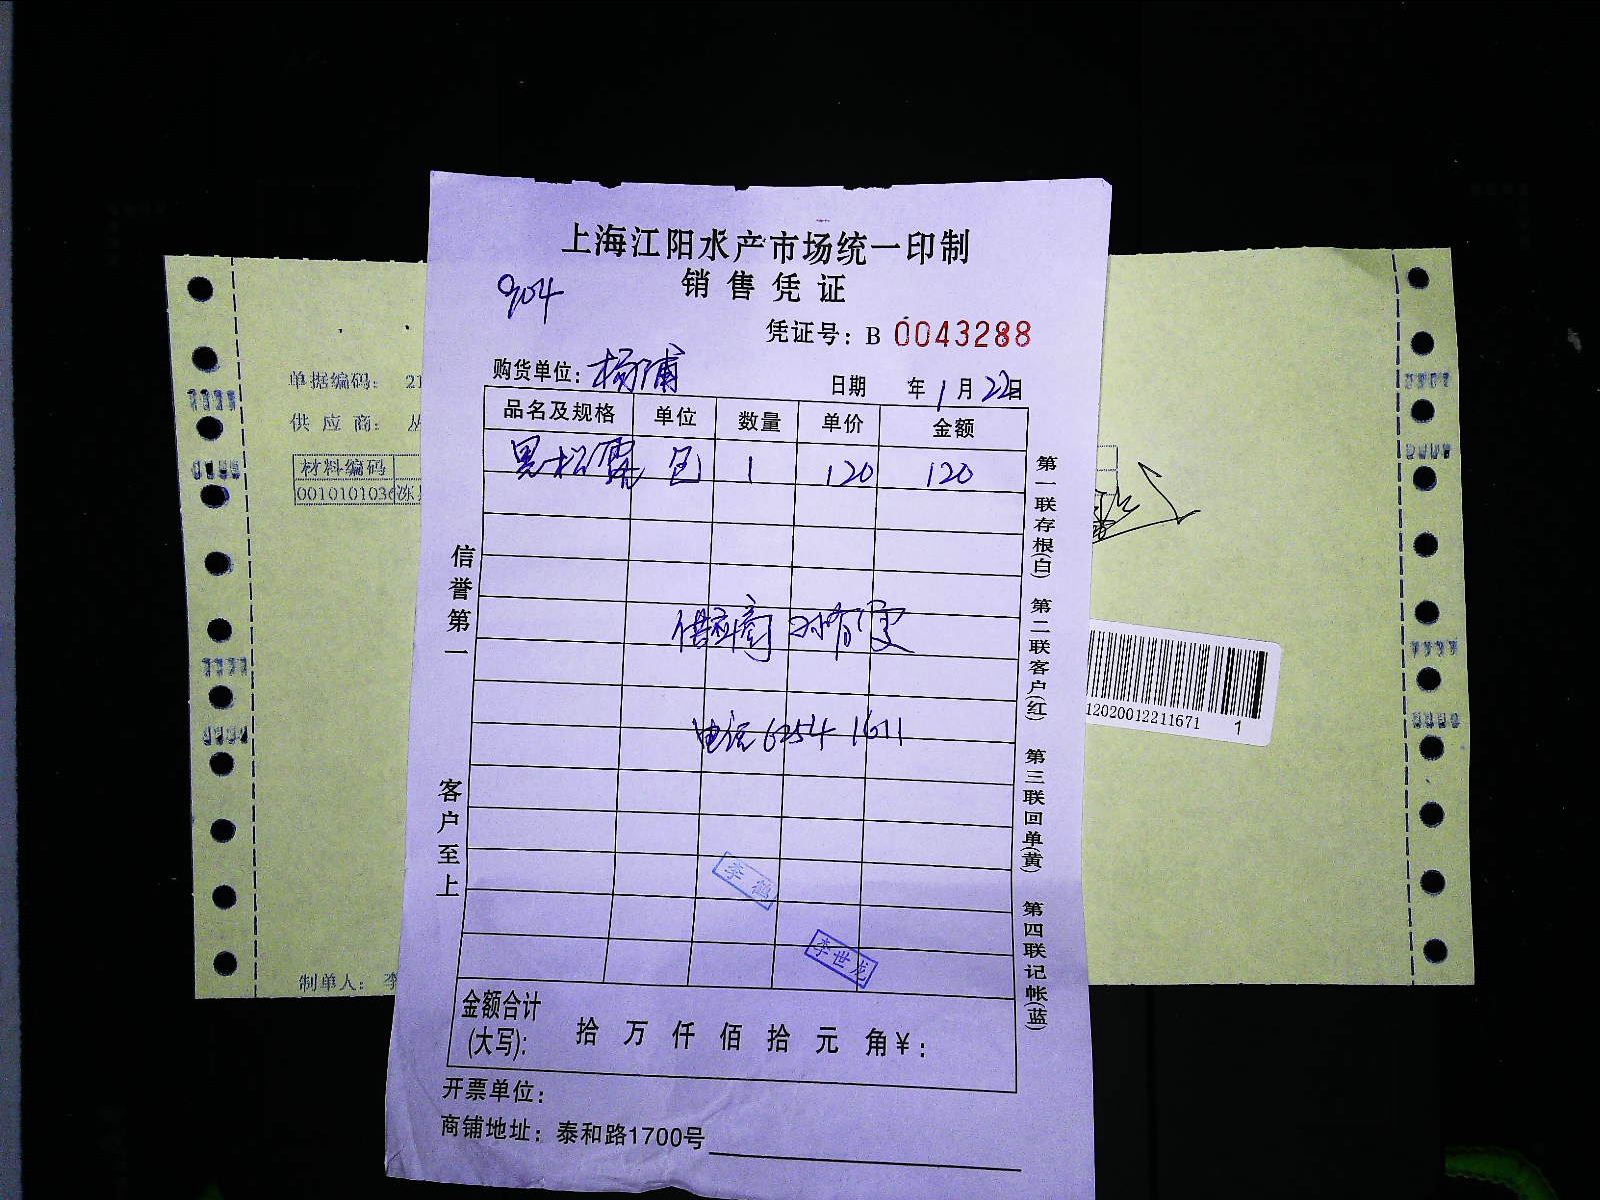 上海江阳水产市场统一印制
销售凭证
904
凭证号：B 0043288
购货单位：杨浦
日期 年 1 月 22 日
品名及规格 单位 数量 单价 金额
黑松露 包 1 120 120
供应商
电话 6254 1611
李世龙
金额合计
(大写)： 拾 万 仟 佰 拾 元 角 ¥：
开票单位：
商铺地址：泰和路1700号
信誉第一
客户至上
第一联存根(白) 第二联客户(红) 第三联回单(黄) 第四联记帐(蓝)
单据编码： 21
供应商： 丛
材料编码
0010101036 冻
制单人： 李
12020012211671 1